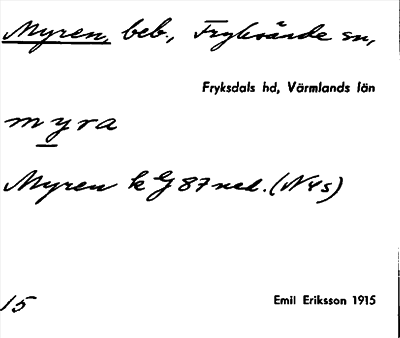 Myren, beb., Fryksände sn,
Fryksdals hd, Värmlands län
myra
Myren k G 87 ned. (N 4 s)
15
Emil Eriksson 1915